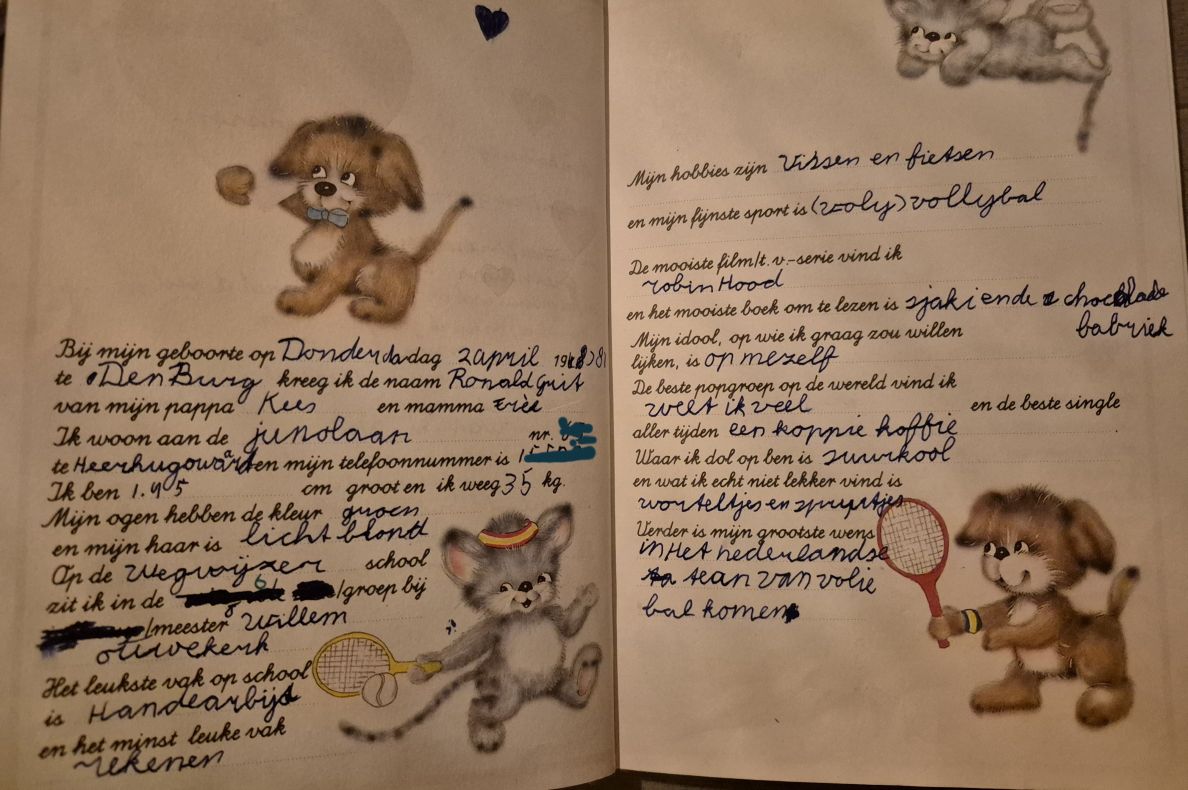 Bij mijn geboorte op Donderdardag 2 april 19(8)81
te Den Burg kreeg ik de naam Ronald Grit
van mijn pappa Kees en mamma
Ik woon aan de junolaan nr.
te Heerhugowaard en mijn telefoonnummer is
Ik ben 1.45 cm groot en ik weeg 35 kg.
Mijn ogen hebben de kleur groen
en mijn haar is licht blond
Op de Wegwijzer school
zit ik in de 6/groep bij
/meester Willem
ouwekerk
Het leukste vak op school
is Handearbijd
en het minst leuke vak
rekenen
Mijn hobbies zijn Vissen en fietsen
en mijn fijnste sport is (voly) vollybal
De mooiste film/t.v.-serie vind ik
robin Hood
en het mooiste boek om te lezen is sjakiende chocolade
babriek
Mijn idool, op wie ik graag zou willen
lijken, is op mezelf
De beste popgroep op de wereld vind ik
weet ik veel en de beste single
aller tijden een koppie koffie
Waar ik dol op ben is zuurkool
en wat ik echt niet lekker vind is
worteltjes en spruitjes
Verder is mijn grootste wens
in Het nederlandse
tean van volie
bal komen